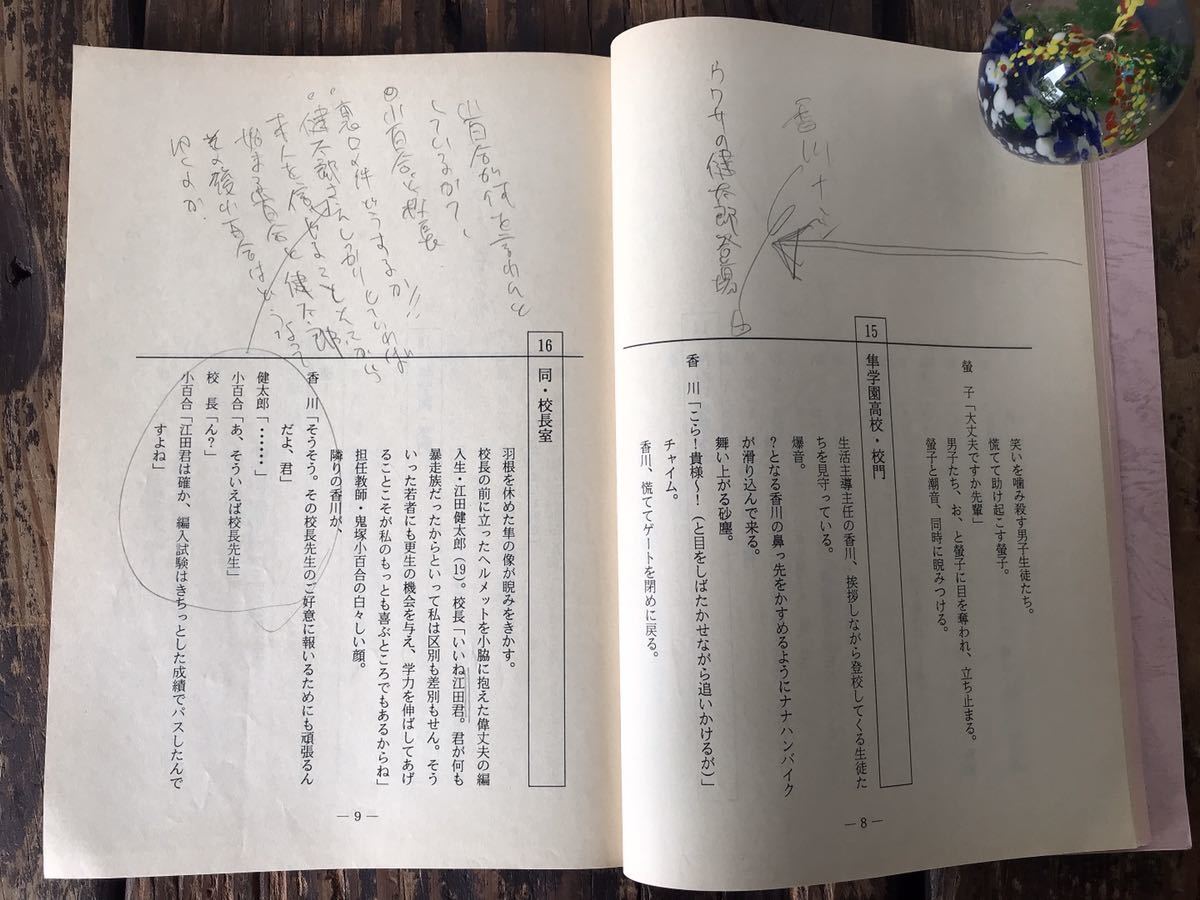 ウワサの健太郎登場
香川
笑いを噛み殺す男子生徒たち。
慌てて助け起こす螢子。
螢　子「大丈夫ですか先輩」
男子たち、お、と螢子に目を奪われ、立ち止まる。
螢子と潮音、同時に睨みつける。
15　隼学園高校・校門
生活主導主任の香川、挨拶しながら登校してくる生徒た
ちを見守っている。
爆音。
？となる香川の鼻っ先をかすめるようにナナハンバイク
が滑り込んで来る。
舞い上がる砂塵。
香　川「こら！貴様～！（と目をしばたかせながら追いかけるが）」
チャイム。
香川、慌ててゲートを閉めに戻る。
―8―
小百合が何を言われんと
しているか？
小百合と校長
裏口の件どうするか!!
健太郎さえしっかりしていれば
始まる百合と健太郎
その後小百合はどうなって
ゆくよか
16　同・校長室
羽根を休めた隼の像が睨みをきかす。
校長の前に立ったヘルメットを小脇に抱えた偉丈夫の編
入生・江田健太郎（19）。校長「いいね江田君。君が何も
暴走族だったからといって私は区別も差別もせん。そう
いった若者にも更生の機会を与え、学力を伸ばしてあげ
ることこそが私のもっとも喜ぶところでもあるからね」
担任教師・鬼塚小百合の白々しい顔。
隣りの香川が、
香　川「そうそう。その校長先生のご好意に報いるためにも頑張るん
だよ、君」
健太郎「……」
小百合「あ、そういえば校長先生」
校　長「ん？」
小百合「江田君は確か、編入試験はきちっとした成績でパスしたんで
すよね」
―9―